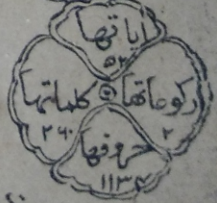 اياتها
٥٢
ركوعاتها
٢
كلماتها
٢٦٠
حروفها
١١٣٣